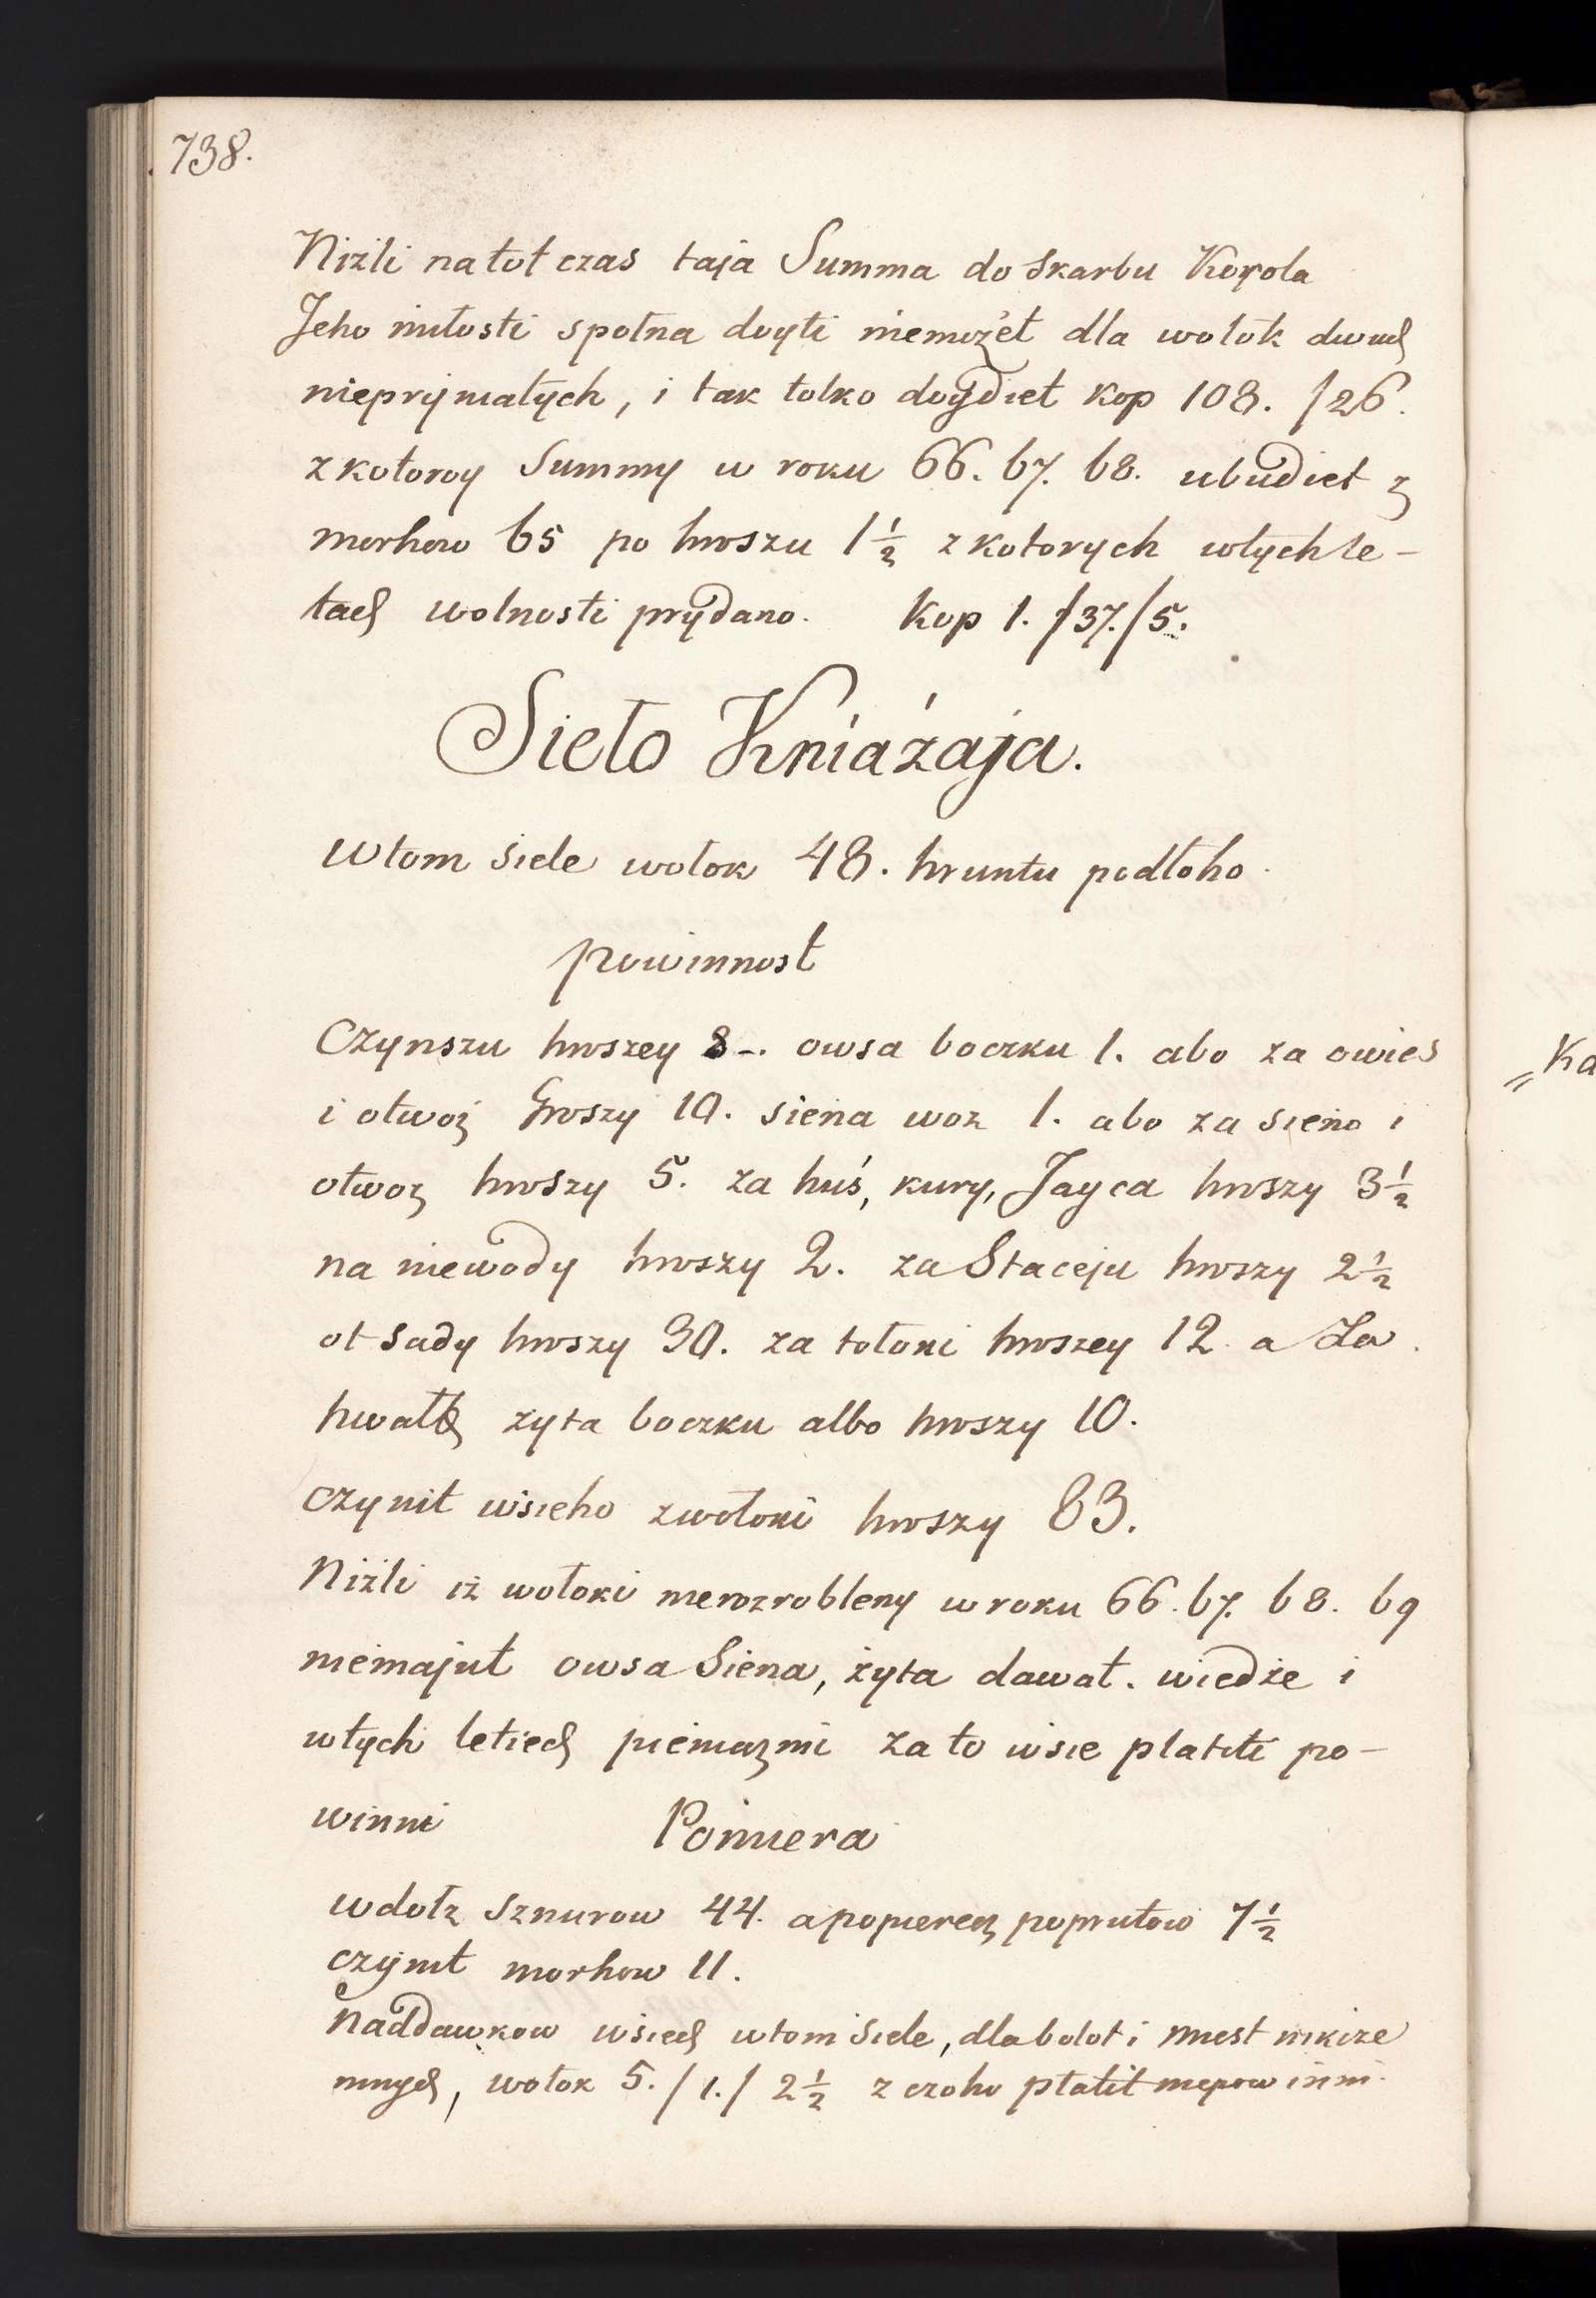 738.
Niźli natot czas taja Summa do skarbu Korola
Jeho miłosti społna doyti niemożet dla wołok dwuch
nieprijmatych, i tak tolko doydiet kop 108. /26.
z kotoroy Summy w roku 66. 67. 68. ubudiet z
morhow 65 po hroszu 1½ z kotorych wtych le-
tach wolnosti prydano. Kop 1. /37./5.
Sieło Kniażaja.
Wtom siele wołok 48. hruntu podłoho.
powinnost
Czynszu hroszey 8-. owsa boczku 1. abo za owies
i otwoz Groszy 10. siena woz 1. abo za sieno i
otwoz hroszy 5. za huś, kury, Jayca hroszy 3½
na niewody hroszy 2. za Staceju hroszy 2½
ot sady hroszy 30. za tołoki hroszey 12 a Za
hwałt żyta boczku albo hroszy 10.
Czynit wsieho zwołoki hroszy 83.
Niźli iż wołoki nierozrobleny w roku 66. 67. 68. 69
niemajut owsa Siena, żyta dawat. wiedże i
wtych letiech pieniazmi za to wsie płatiti po-
winni Pomiera
wdołz sznurow 44. a popierecz poprutow 7½
czynit morhow 11.
Naddawkow wsiech wtom siele, dla bolot i miest nikcze
mnych, wołok 5. / 1. / 2½ z czoho płatit niepowinni.
„Ka